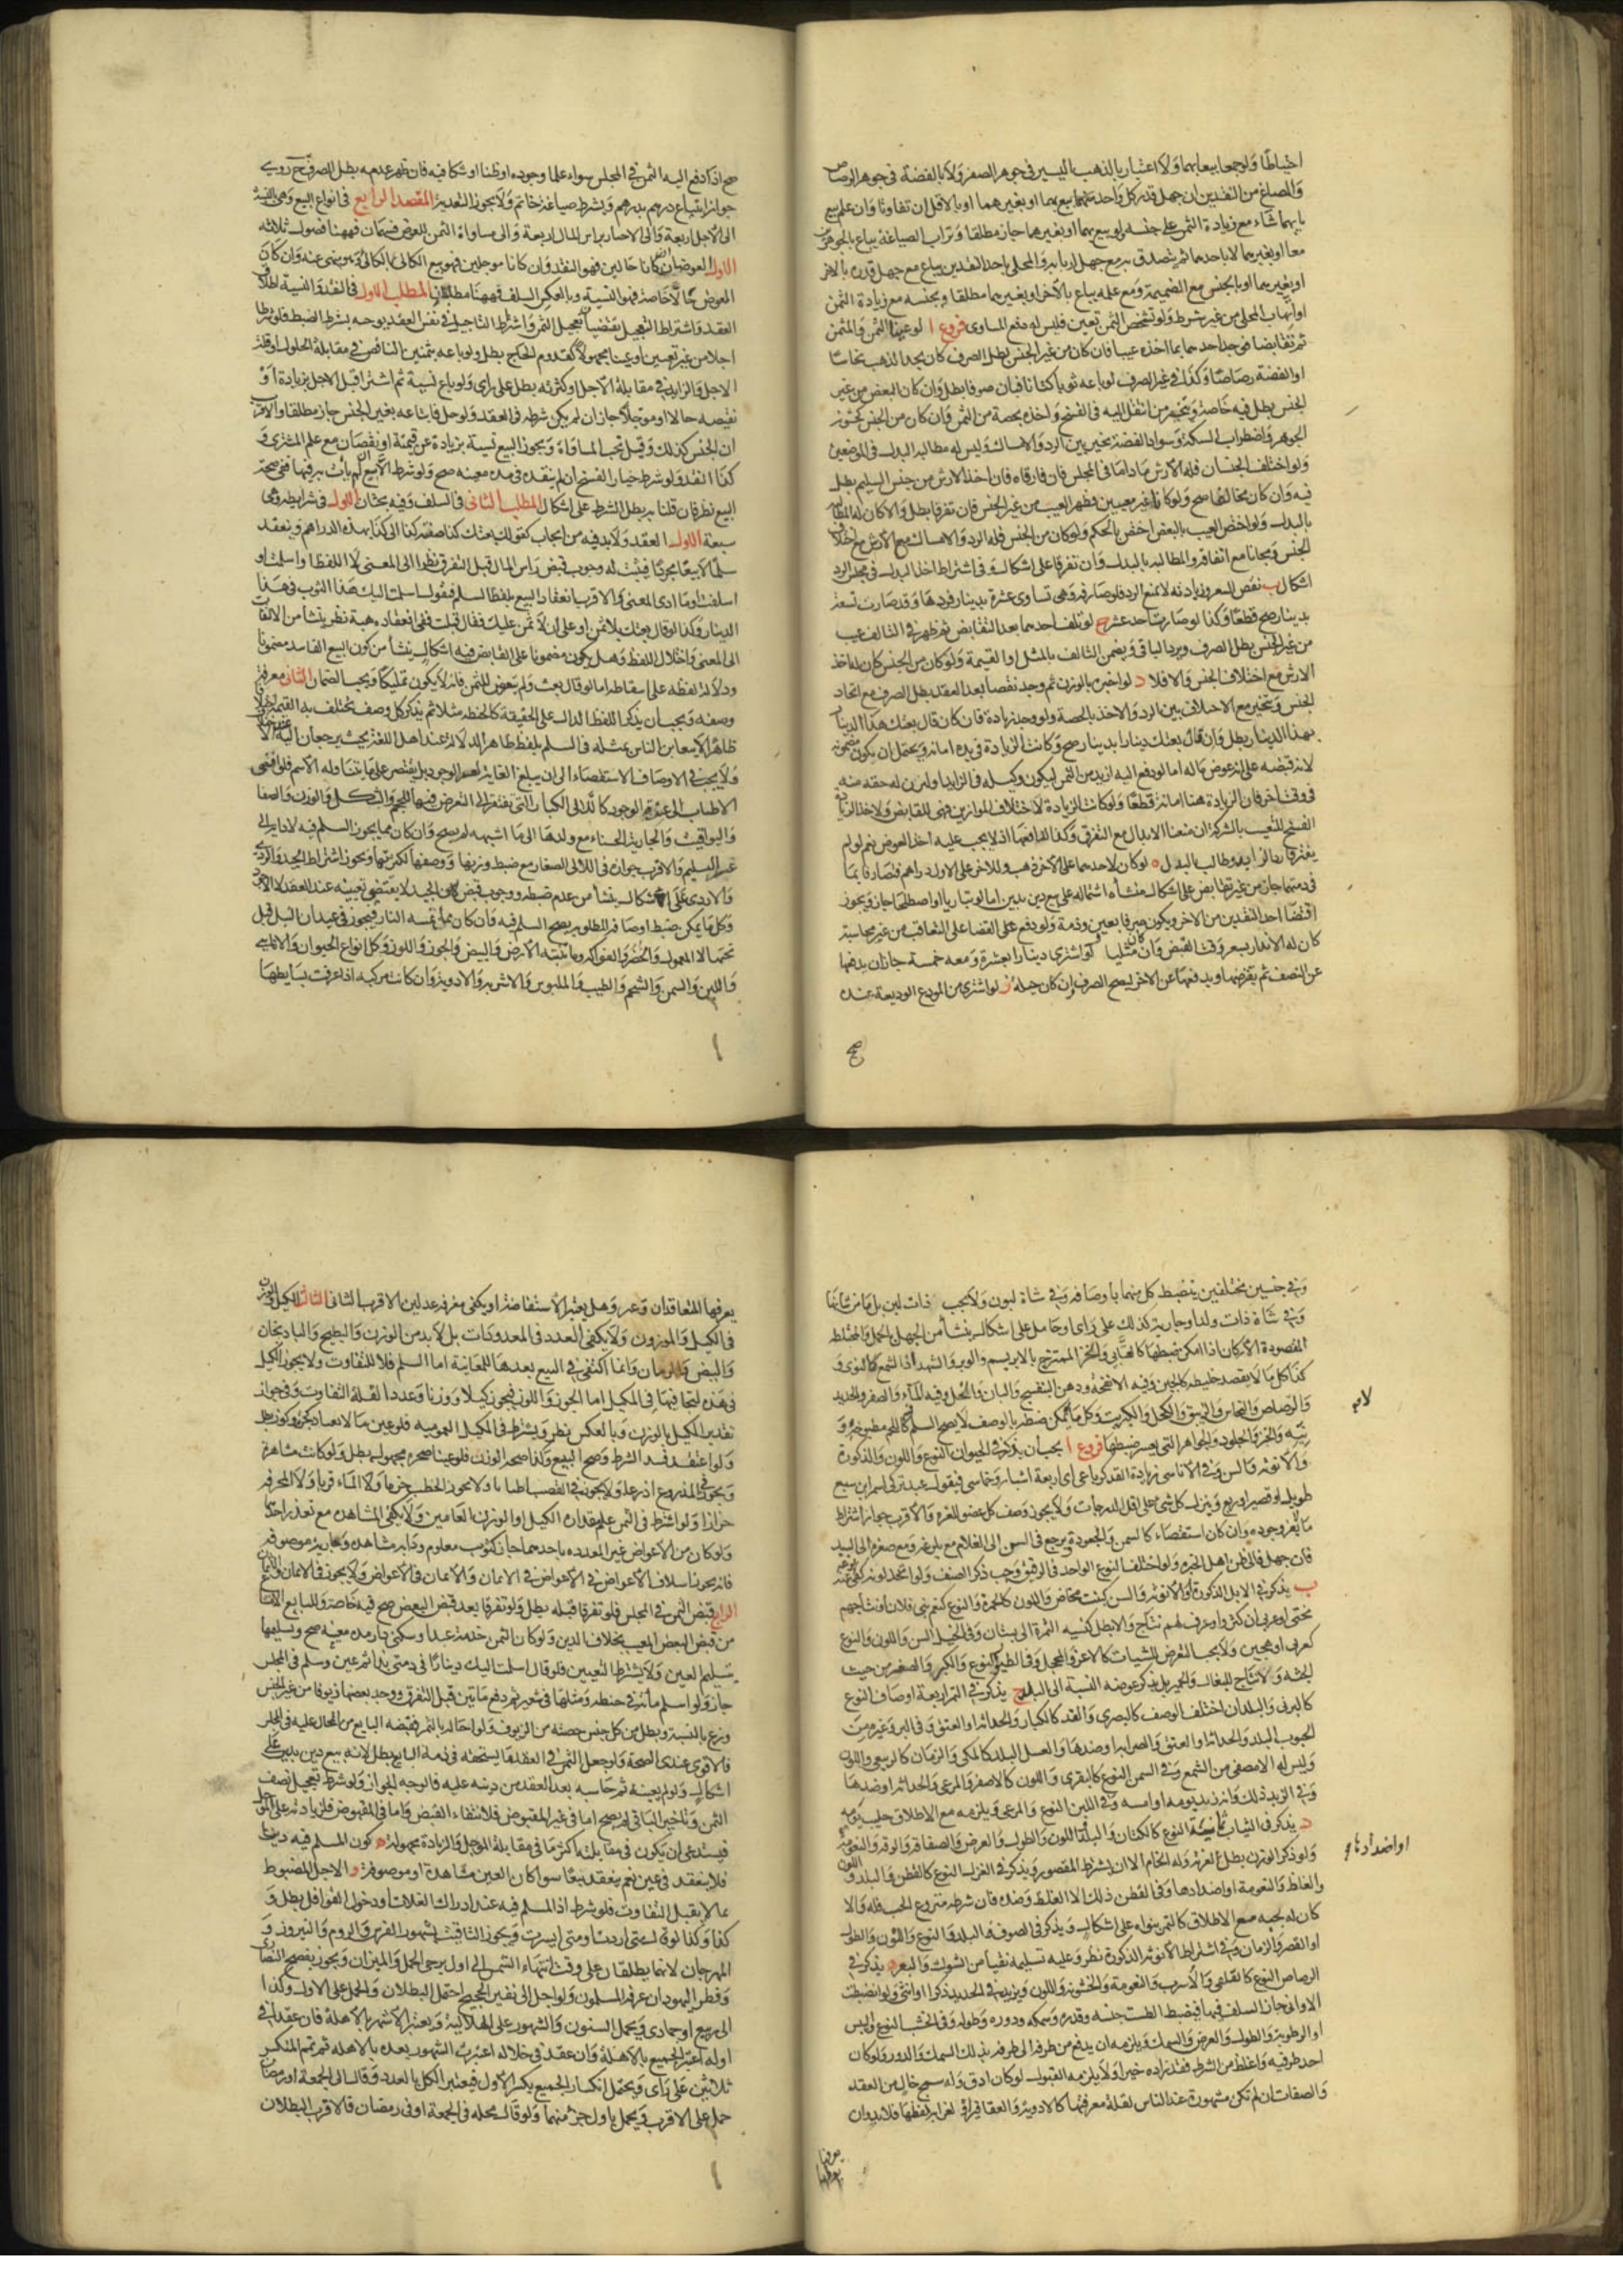 احتياطا ولو جمعا بيعا بهما ولا اعتبار بالذهب اليسير في جوهر الصفر ولا بالفضة في جوهر الرصاص
والمصاغ من النقدين ان جهل قدر كل واحد منهما بيع بهما او بغيرهما او بالاقل ان تفاوتا وان علم بيع
بايهما شاء مع زيادة الثمن على جنسه ولو بيع بهما او بغيرهما جاز مطلقا وتراب الصياغة يباع بالجوهرين
معا او بغيرهما لا باحدهما ثم يتصدق به مع جهل اربابه والمحلى باحد النقدين يباع مع جهل قدره بالاخر
او بغيرهما او بالجنس مع الضميمة ومع علمه يباع بالاخر او بغيرهما مطلقا وبجنسه مع زيادة الثمن
او اتهاب المحلى من غير شرط ولو تشخص الثمن تعين فليس له دفع المساوى فروع ا لو عينا الثمن والمثمن
ثم تقابضا فوجد احدهما بما اخذه عيبا فان كان من غير الجنس بطل الصرف كان يجد الذهب نحاسا
او الفضة رصاصا وكذا في غير الصرف لو باعه ثوبا كتانا فبان صوفا بطل وان كان البعض من غير
الجنس بطل فيه خاصة ويتخير من انتقل اليه في الفسخ واخذه بحصة من الثمن وان كان من الجنس كخشونة
الجوهر واضطراب السكة وسواد الفضة تخير بين الرد والامساك وليس له مطالبه البدل في الموضعين
ولو اختلف الجنسان فله الارش ماداما في المجلس فان فارقاه فان اخذ الارش من جنس السليم بطل
فيه وان كان مخالفا صح ولو كانا غير معينين فظهر العيب من غير الجنس فان تفرقا بطل والا كان له المطالبة
بالبدل ولو اختص العيب بالبعض اختص بالحكم ولو كان من الجنس فله الرد والامساك مع الارش مع اختلاف
الجنس ومجانا مع اتفاقه والمطالبه بالبدل وان تفرقا على اشكال وفي اشتراط اخذ البدل في مجلس الرد
اشكال ب نقص السعر وزيادته لا تمنع الرد فلو صارفه وهى تساوى عشرة بدينار فردها وقد صارت تسعة
بدينار صح قطعا وكذا لو صارت احد عشر ج لو تلف احدهما بعد التقابض ثم ظهر في التالف عيب
من غير الجنس بطل الصرف ويرد الباقي ويضمن التالف بالمثل او القيمة ولو كان من الجنس كان له اخذ
الارش مع اختلاف الجنس والا فلا د لو اخبره بالوزن ثم وجد نقصا بعد العقد بطل الصرف مع اتحاد
الجنس ويتخير مع الاختلاف بين الرد والاخذ بالحصة ولو وجد زيادة فان كان قال بعتك هذا الدينار
بهذا الدينار بطل وان قال بعتك دينارا بدينار صح وكانت الزيادة في يده امانة ويحتمل ان يكون مضمونة
لانه قبضه على انه عوض ماله اما لو دفع اليه ازيد من الثمن ليكون وكيله في الزايد او ليزن له حقه منه
في وقت اخر فان الزيادة هنا امانة قطعا ولو كانت الزيادة لاختلاف الموازين فهى للقابض ولاخذ الزيادة
الفسخ للتعيب بالشركة ان منعنا الابدال مع التفرق وكذا لدافعها اذ لا يجب عليه اخذ العوض نعم لو لم
يفترقا رد الزايد وطالب بالبدل ه لو كان لاحدهما على الاخر ذهب وللاخر على الاول دراهم فتصارفا بما
في ذمتهما جاز من غير تقابض على اشكال منشأه اشتماله على بيع دين بدين اما لو تباريا او اصطلحا جاز ويجوز
اقتضا احد النقدين من الاخر ويكون صرفا بعين وذمة ولو دفع على القضا على التعاقب من غير محاسبة
كان له الانذار بسعر وقت القبض وان كان مثليا و لو اشترى دينارا بعشرة ومعه خمسة جاز ان يدفعها
عن النصف ثم يقترضها ويدفعها عن الاخر ليصح الصرف وان كان حيلة ز لو اشترى من المودع الوديعة عنده
صح
صح اذا دفع اليه الثمن في المجلس سواء علما وجوده او ظنا او شكا فيه فان ظهر عدمه بطل الصرف ح روى
جواز ابتياع درهم بدرهم ويشترط صياغة خاتم ولا يجوز التعدية المقصد الرابع في انواع البيع وهى بالنسبة
الى الاجل اربعة والى الاخبار براس المال اربعة والى مساواة الثمن للعوض قسمان فههنا فصول ثلاثه
الاول العوضان ان كانا حالين فهو النقد وان كانا موجلين فهو بيع الكالى بالكالى وهو منهى عنه وان كان
العوض حالا خاصة فهو النسية وبالعكس السلف فههنا مطلبان المطلب الاول في النقد والنسية اطلاق
العقد واشتراط التعجيل يقتضيان تعجيل الثمن واشتراط التاجيل في نفس العقد يوجبه بشرط الضبط فلو شرطا
اجلا من غير تعيين او عينا مجهولا كقدوم الحاج بطل ولو باعه بثمنين الناقص في مقابلة الحلول او قلة
الاجل والزايد في مقابلة الاجل او كثرته بطل على راى ولو باع نسية ثم اشترا قبل الاجل بزيادة او
نقيصه حالا او موجلا جاز ان لم يكن شرطه في العقد ولو حل فابتاعه بغير الجنس جاز مطلقا والاقرب
ان الجنس كذلك وقيل تجب المساواة ويجوز البيع نسية بزيادة عن قيمته او نقصان مع علم المشترى و
كذا النقد ولو شرط خيار الفسخ ان لم ينقده في مدة معينه صح ولو شرط الا بيع ان لم يات به فيها ففي صحة
البيع نظر فان قلنا به بطل الشرط على اشكال المطلب الثانى في السلف وفيه بحثان الاول في شرايطه وهى
سبعة الاول العقد ولا بد فيه من ايجاب كقولك بعتك كذا صفته كذا الى كذا بهذه الدراهم وينعقد
سلما لا بيعا مجردا فيثبت له وجوب قبض راس المال قبل التفرق نظرا الى المعنى لا اللفظ او اسلمت او
اسلفت او ما ادى المعنى والاقرب انعقاد البيع بلفظ السلم فيقول اسلمت اليك هذا الثوب في هذا
الدينار وكذا لو قال بعتك بلا ثمن او على ان لا ثمن عليك فقال قبلت ففي انعقاده هبة نظر ينشأ من الالتفات
الى المعنى واختلال اللفظ وهل يكون مضمونا على القابض فيه اشكال ينشأ من كون البيع الفاسد مضمونا
ودلالة لفظه على اسقاطه اما لو قال بعت ولم يتعرض للثمن فانه لا يكون تمليكا ويجب الضمان الثانى معرفة
وصفه ويجب ان يذكر اللفظ الدال على الحقيقة كالحنطه مثلا ثم يذكر كل وصف تختلف به القيمه اختلافا
ظاهرا لا يتغابن الناس بمثله في السلم بلفظ ظاهر الدلالة عند اهل اللغة بحيث يرجعان اليه عند الاختلاف
ولا يجب في الاوصاف الاستقصاء الى ان يبلغ الغاية لعسر الوجود بل يقتصر على ما يتناوله الاسم فلو افضى
الاطناب الى عزة الوجود كاللالى الكبار التى يفتقر الى التعرض فيها للحجم والشكل والوزن والصفا
واليواقيت والجارية الحسناء مع ولدها الى ما اشبهه لم يصح وان كان مما يجوز السلم فيه لادايه الى
عسر التسليم والاقرب جوازه في اللالى الصغار مع ضبط وزنها ووصفها لكثرتها ويجوز اشتراط الجيد والردى
والاردى على اشكال ينشأ من عدم ضبطه ووجوب قبض الجيد لا يقتضى تعيينه عند العقد لا الاجود
وكل ما يمكن ضبط اوصافه المطلوبه يصح السلم فيه وان كان مما تمسه النار فيجوز في عيدان النبل قبل
نحتها لا المعمول والخضر والفواكه وما تنبته الارض والبيض والجوز واللوز وكل انواع الحيوان والاناسى
واللبن والسمن والشحم والطيب والملبوس والاشربة والادوية وان كانت مركبة اذا عرفت بسايطها
وفي جنسين مختلفين ينضبط كل منهما باوصافه وفي شاة لبون ولا يجب ذات لبن بل ما من شانها
وفي شاة ذات ولد او جارية كذلك على راى او حامل على اشكال ينشأ من الجهل بالحمل والمختلط
المقصودة الاركان اذا امكن ضبطها كالعتابى والخز الممتزج بالابريسم والوبر والشهد اذ الشمع كالنوى و
كذا كل ما لا يقصد خليطه كالجبن وفيه الانفحة ودهن البنفسج والبان والخل وفيه الماء والصفر والحديد
والرصاص والنحاس والزيبق والكحل والكبريت وكل ما لا يمكن ضبطه بالوصف لا يصح السلم فيه كاللحم مطبوخه و
نيه والخبز والجلود والجواهر التى يعسر ضبطها فروع ا يجب ان يذكر في الحيوان النوع واللون والذكورة
والانوثة والسن وفي الاناسى زيادة القد كرباعى اى اربعة اشبار وخماسى فيقول عبد تركى اسمر ابن سبع
طويل او قصير او ربع وينزل كل شى على اقل الدرجات ولا يجوز وصف كل عضو للغرر والاقرب جواز اشتراط
ما لا يعز وجوده وان كان استقصاء كالسمن والجعودة ويرجع في السن الى الغلام مع بلوغه ومع صغره الى السيد
فان جهل فالى ظن اهل الخبرة ولو اختلف النوع الواحد في الرقيق وجب ذكر الصنف ولو اتحد لونه كفى
ب يذكر في الابل الذكورة او الانوثة والسن كبنت مخاض واللون كالحمرة والنوع كنعم بنى فلان او نتاجهم
بختى او عربى ان كثروا وعرف لهم نتاج والا بطل كنسبه الثمرة الى بستان وفي الخيل السن واللون والنوع
كعربى او هجين ولا يجب التعرض للشيات كالاغر والمحجل وفي الطيور النوع والكبر والصغر من حيث
الجثه ولا نتاج للبغال والحمير بل يذكر عوضه النسبة الى البلد ج يذكر في التمر اربعة اوصاف النوع
كالبرنى والبلد ان اختلف الوصف كالبصرى والقد كالكبار والحداثة او العتق وفي البر وغيره من
الحبوب البلد والحداثة او العتق والصرابة او ضدها والعسل البلد كالمكى والزمان كالربيعى واللون
وليس له الا مصفى من الشمع وفي السمن النوع كالبقرى واللون كالاصفر والمرعى والحداثة او ضدها
وفي الزبد ذلك وانه زبد يومه او امسه وفي اللبن النوع والمرعى ويلزمه مع الاطلاق حليب يومه
د يذكر في الثياب ثمانية النوع كالكتان والبلد واللون والطول والعرض والصفاقة والرقة والنعومة
ولو ذكر الوزن بطل لعزته وله الخام الا ان يشترط المقصور ويذكر في الغزل النوع كالقطن والبلد واللون
والغلظ والنعومة او اضدادها وفي القطن ذلك الا الغلظ وضده فان شرطه منزوع الحب فله والا
كان له بحبه مع الاطلاق كالتمر بنواه على اشكال ويذكر في الصوف البلد والنوع واللون والطول
او القصر والزمان وفي اشتراط الانوثة او الذكورة نظر وعليه تسليمه نقيا من الشوك والبعر ه يذكر في
الرصاص النوع كالقلعى والاسرب والنعومة والخشونة واللون ويزيد في الحديد ذكرا او انثى ولو انضبطت
الاوانى جاز السلف فيها فيضبط الطست جنسه وقدره وسمكه ودوره وطوله وفي الخشب النوع واليبس
او الرطوبة والطول والعرض والسمك ويلزمه ان يدفع من طرفه الى طرفه بذلك السمك والدور ولو كان
احد طرفيه واغلظ من الشرط فقد زاده خيرا ولا يلزمه القبول لو كان ادق وله سمح خال من العقد
والصفات ان لم تكن مشهورة عند الناس لقلة معرفتها كالادوية والعقاقير او لغرابة لفظها فلا بد وان
لا يم
او اضدادها
يعرفها
يعرفها المتعاقدان وغيرهما وهل يعتبر الاستفاضة او يكفى معرفة عدلين الاقرب الثانى الثالث الكيل والوزن
في المكيل والموزون ولا يكفى العدد في المعدودات بل لا بد من الوزن والبطيخ والباذنجان
والبيض والرمان وانما اكتفى في البيع بعدها للمعاينة اما السلم فلا للتفاوت ولا يجوز الكيل
في هذه لتجافيها في المكيل اما الجوز واللوز فيجوز كيلا ووزنا وعددا لقلة التفاوت وفي جواز
تقدير المكيل بالوزن وبالعكس نظر ويشترط في المكيل العموميه فلو عين ما لا يعتاد كجرة وكوز بطل
ولو اعتيد فسد الشرط وصح البيع وكذا صنجة الوزن فلو عينا صخرة مجهولة بطل ولو كانت مشاهرة
ويجوز في المذروع اذرعا ولا يجوز في القصب اطنانا ولا يجوز الحطب حزما ولا الماء قربا ولا المخرفة
جزازا ولو اشترط في الثمن علم مقداره الكيل او الوزن العامين ولا يكفى المشاهدة مع تعذر احدهما
ولو كان من الاعواض غير المعدوده باحدهما جاز كثوب معلوم ودابة مشاهده وجارية موصوفة
فانه يجوز اسلاف الاعواض في الاعواض وفي الاثمان والاثمان في الاعواض ولا يجوز في الاثمان بالاثمان
الرابع قبض الثمن في المجلس فلو تفرقا قبله بطل ولو تفرقا بعد قبض البعض صح فيه خاصة وللبايع الامتناع
من قبض البعض للعيب بخلاف الدين ولو كان الثمن خدمة عبد او سكنى دار مدة معينه صح وتسليمها
بتسليم العين ولا يشترط التعيين فلو قال اسلمت اليك دينارا في ذمتى ثم عين وسلم في المجلس
جاز ولو اسلم مائة في حنطه ومثلها في شعير ثم دفع مايتين قبل التفرق ووجد بعضها زيوفا من غير الجنس
وزع بالنسبة وبطل من كل جنس حصته من الزيوف ولو احاله بالثمن فقبضه البايع من المحال عليه في المجلس
فالاقوى عندى الصحة ولو جعل الثمن في العقد ما يستحقه في ذمة البايع بطل لانه بيع دين بدين على
اشكال ولو لم يعينه ثم حاسبه بعد العقد من دينه عليه فالوجه الجواز ولو شرط تعجيل نصف
الثمن وتاخير الباقى لم يصح اما في غير المقبوض فلانتفاء القبض واما في المقبوض فلزيادته على الموجل
فيستدعى ان يكون في مقابلته اكثر مما في مقابلة الموجل والزيادة مجهولة ه كون المسلم فيه دينا
فلا ينعقد في عين نعم ينعقد بيعا سوا كان العين مشاهدة او موصوفة و الاجل المضبوط
بما لا يقبل التفاوت فلو شرط اذا المسلم فيه عند ادراك الغلات او دخول القوافل بطل و
كذا لو قال متى اردت او متى ايسرت ويجوز التاقيت بشهور الفرس والروم والنيروز و
المهرجان لانهما يطلقان على وقت انتهاء الشمس الى اول برجى الحمل والميزان ويجوز بفصح النصارى
وفطر اليهود ان عرفه المسلمون ولو اجل الى نفير الحجيج احتمل البطلان والحمل على الاول وكذا
الى ربيع او جمادى ويحمل السنون والشهور على الهلالية ويعتبر الاشهر بالاهلة فان عقدا في
اوله اعتبر الجميع بالاهلة وان عقد في خلاله اعتبرت الشهور بعده بالاهله ثم تمم المنكسر
ثلاثين على راى ويحتمل انكسار الجميع بكسر الاول فيعتبر الكل بالعدد ولو قال الى الجمعة او رمضان
حمل على الاقرب ويحمل باول جزء منهما ولو قال محله في الجمعة او في رمضان فالاقرب البطلان